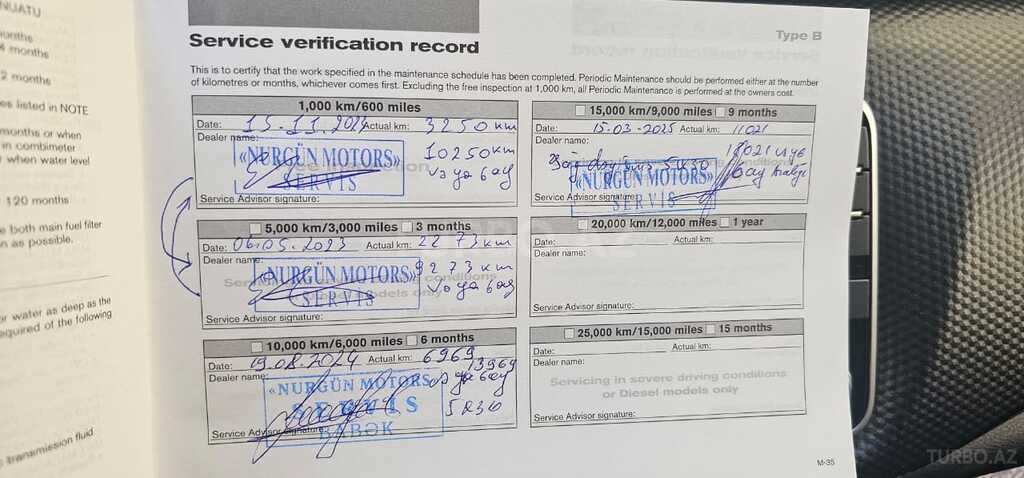 NUATU
months
4 months
2 months
es listed in NOTE
months or when
in combimeter
when water level
120 months
e both main fuel filter
n as possible.
or water as deep as the
equired of the following
transmission fluid
Service verification record
Type B
This is to certify that the work specified in the maintenance schedule has been completed. Periodic Maintenance should be performed either at the number
of kilometres or months, whichever comes first. Excluding the free inspection at 1,000 km, all Periodic Maintenance is performed at the owners cost.
1,000 km/600 miles
Date: Actual km: 3250 km
Dealer name: 10250 km
«NURGÜN MOTORS»
SERVİS
Service Advisor signature:
5,000 km/3,000 miles 3 months
Date: 06.05.2023 Actual km: 2273 km
Dealer name: 9273 km
«NURGÜN MOTORS»
SERVİS
Service Advisor signature:
10,000 km/6,000 miles 6 months
Date: 19.08.2024 Actual km: 6969
13969
Dealer name:
«NURGÜN MOTORS
SERVİS
BABƏK
5W30
Service Advisor signature:
15,000 km/9,000 miles 9 months
Date: 15.03.2025 Actual km: 11021
Dealer name: 18021
5W30
«NURGÜN MOTORS»
SERVİS
Service Advisor signature:
20,000 km/12,000 miles 1 year
Date: Actual km:
Dealer name:
Service Advisor signature:
25,000 km/15,000 miles 15 months
Date: Actual km:
Dealer name:
Servicing in severe driving conditions
or Diesel models only
Service Advisor signature:
M-35
TURBO.AZ